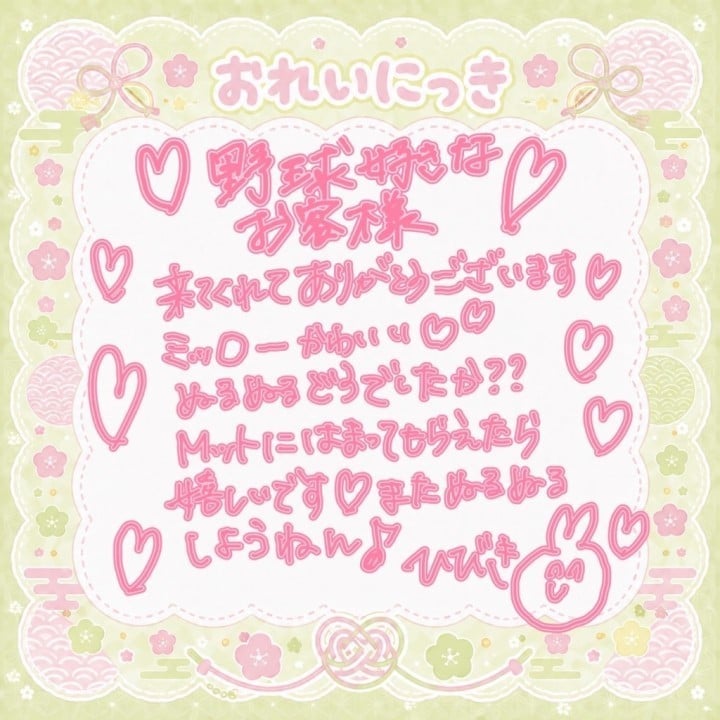 おれいにっき
野球好きな
お客様
来てくれてありがとうございます♡
ミッローかわいい♡♡
ぬるぬるどうでしたか??
Mットにはまってもらえたら
嬉しいです♡またぬるぬる
しようねん♪
ひびき